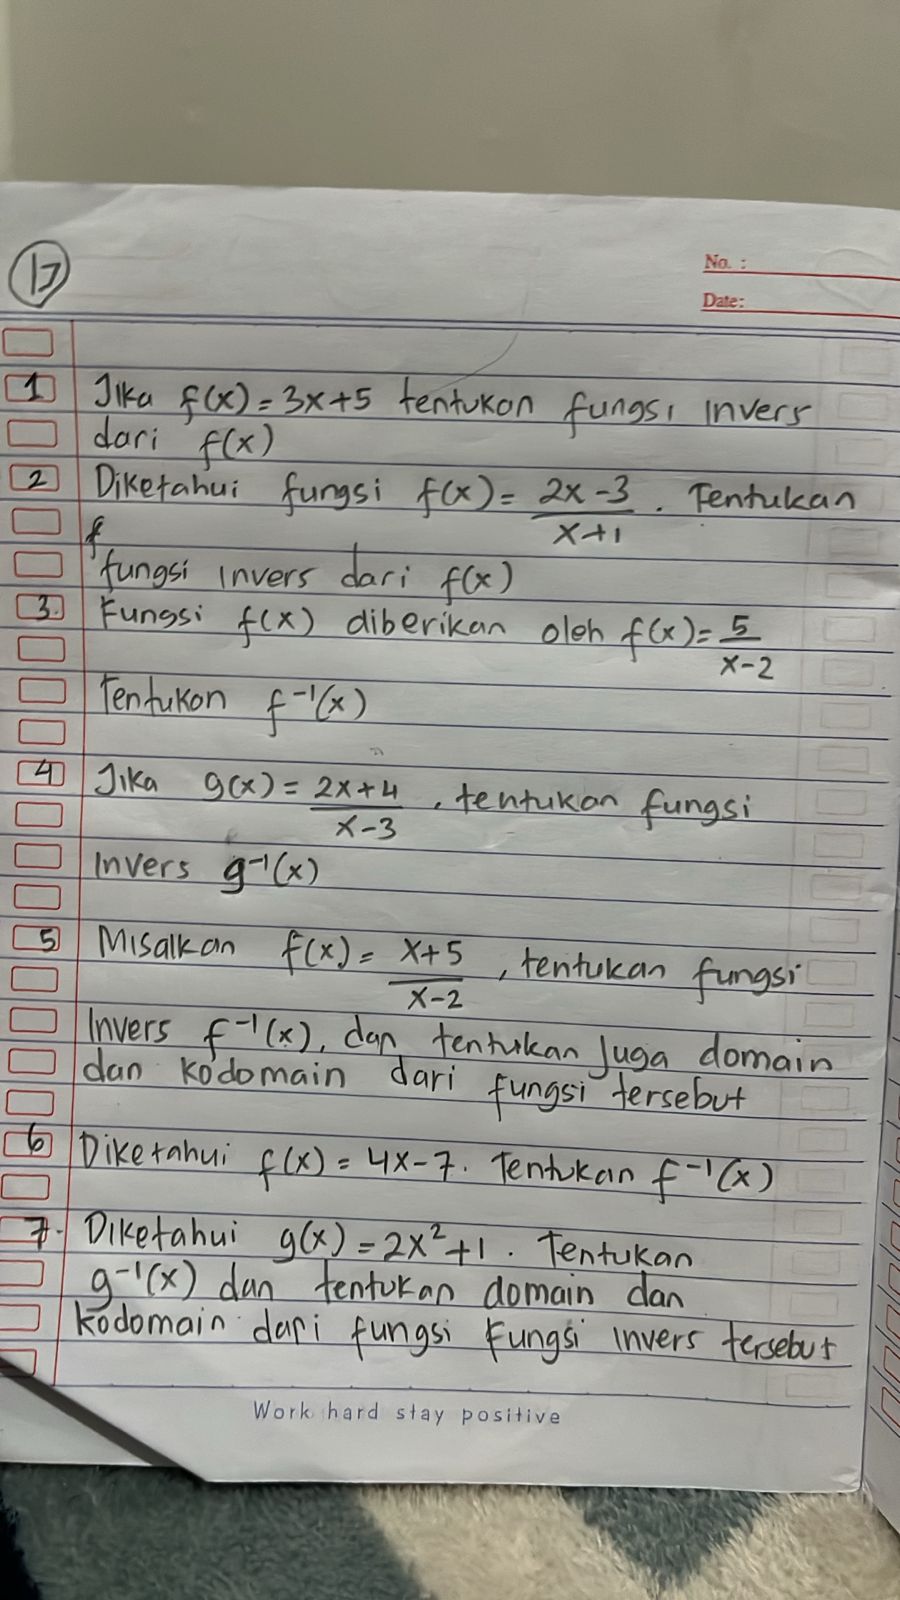 17
No. :
Date:
1 Jika f(x) = 3x+5 tentukan fungsi invers
dari f(x)
2 Diketahui fungsi f(x) = 2x-3 / x+1 . Tentukan
f
fungsi invers dari f(x)
3. Fungsi f(x) diberikan oleh f(x) = 5 / x-2
Tentukan f⁻¹(x)
4 Jika g(x) = 2x+4 / x-3 , tentukan fungsi
Invers g⁻¹(x)
5 Misalkan f(x) = x+5 / x-2 , tentukan fungsi
Invers f⁻¹(x), dan tentukan juga domain
dan kodomain dari fungsi tersebut
6 Diketahui f(x) = 4x-7. Tentukan f⁻¹(x)
7. Diketahui g(x) = 2x²+1. Tentukan
g⁻¹(x) dan tentukan domain dan
kodomain dari fungsi Fungsi invers tersebut
Work hard stay positive